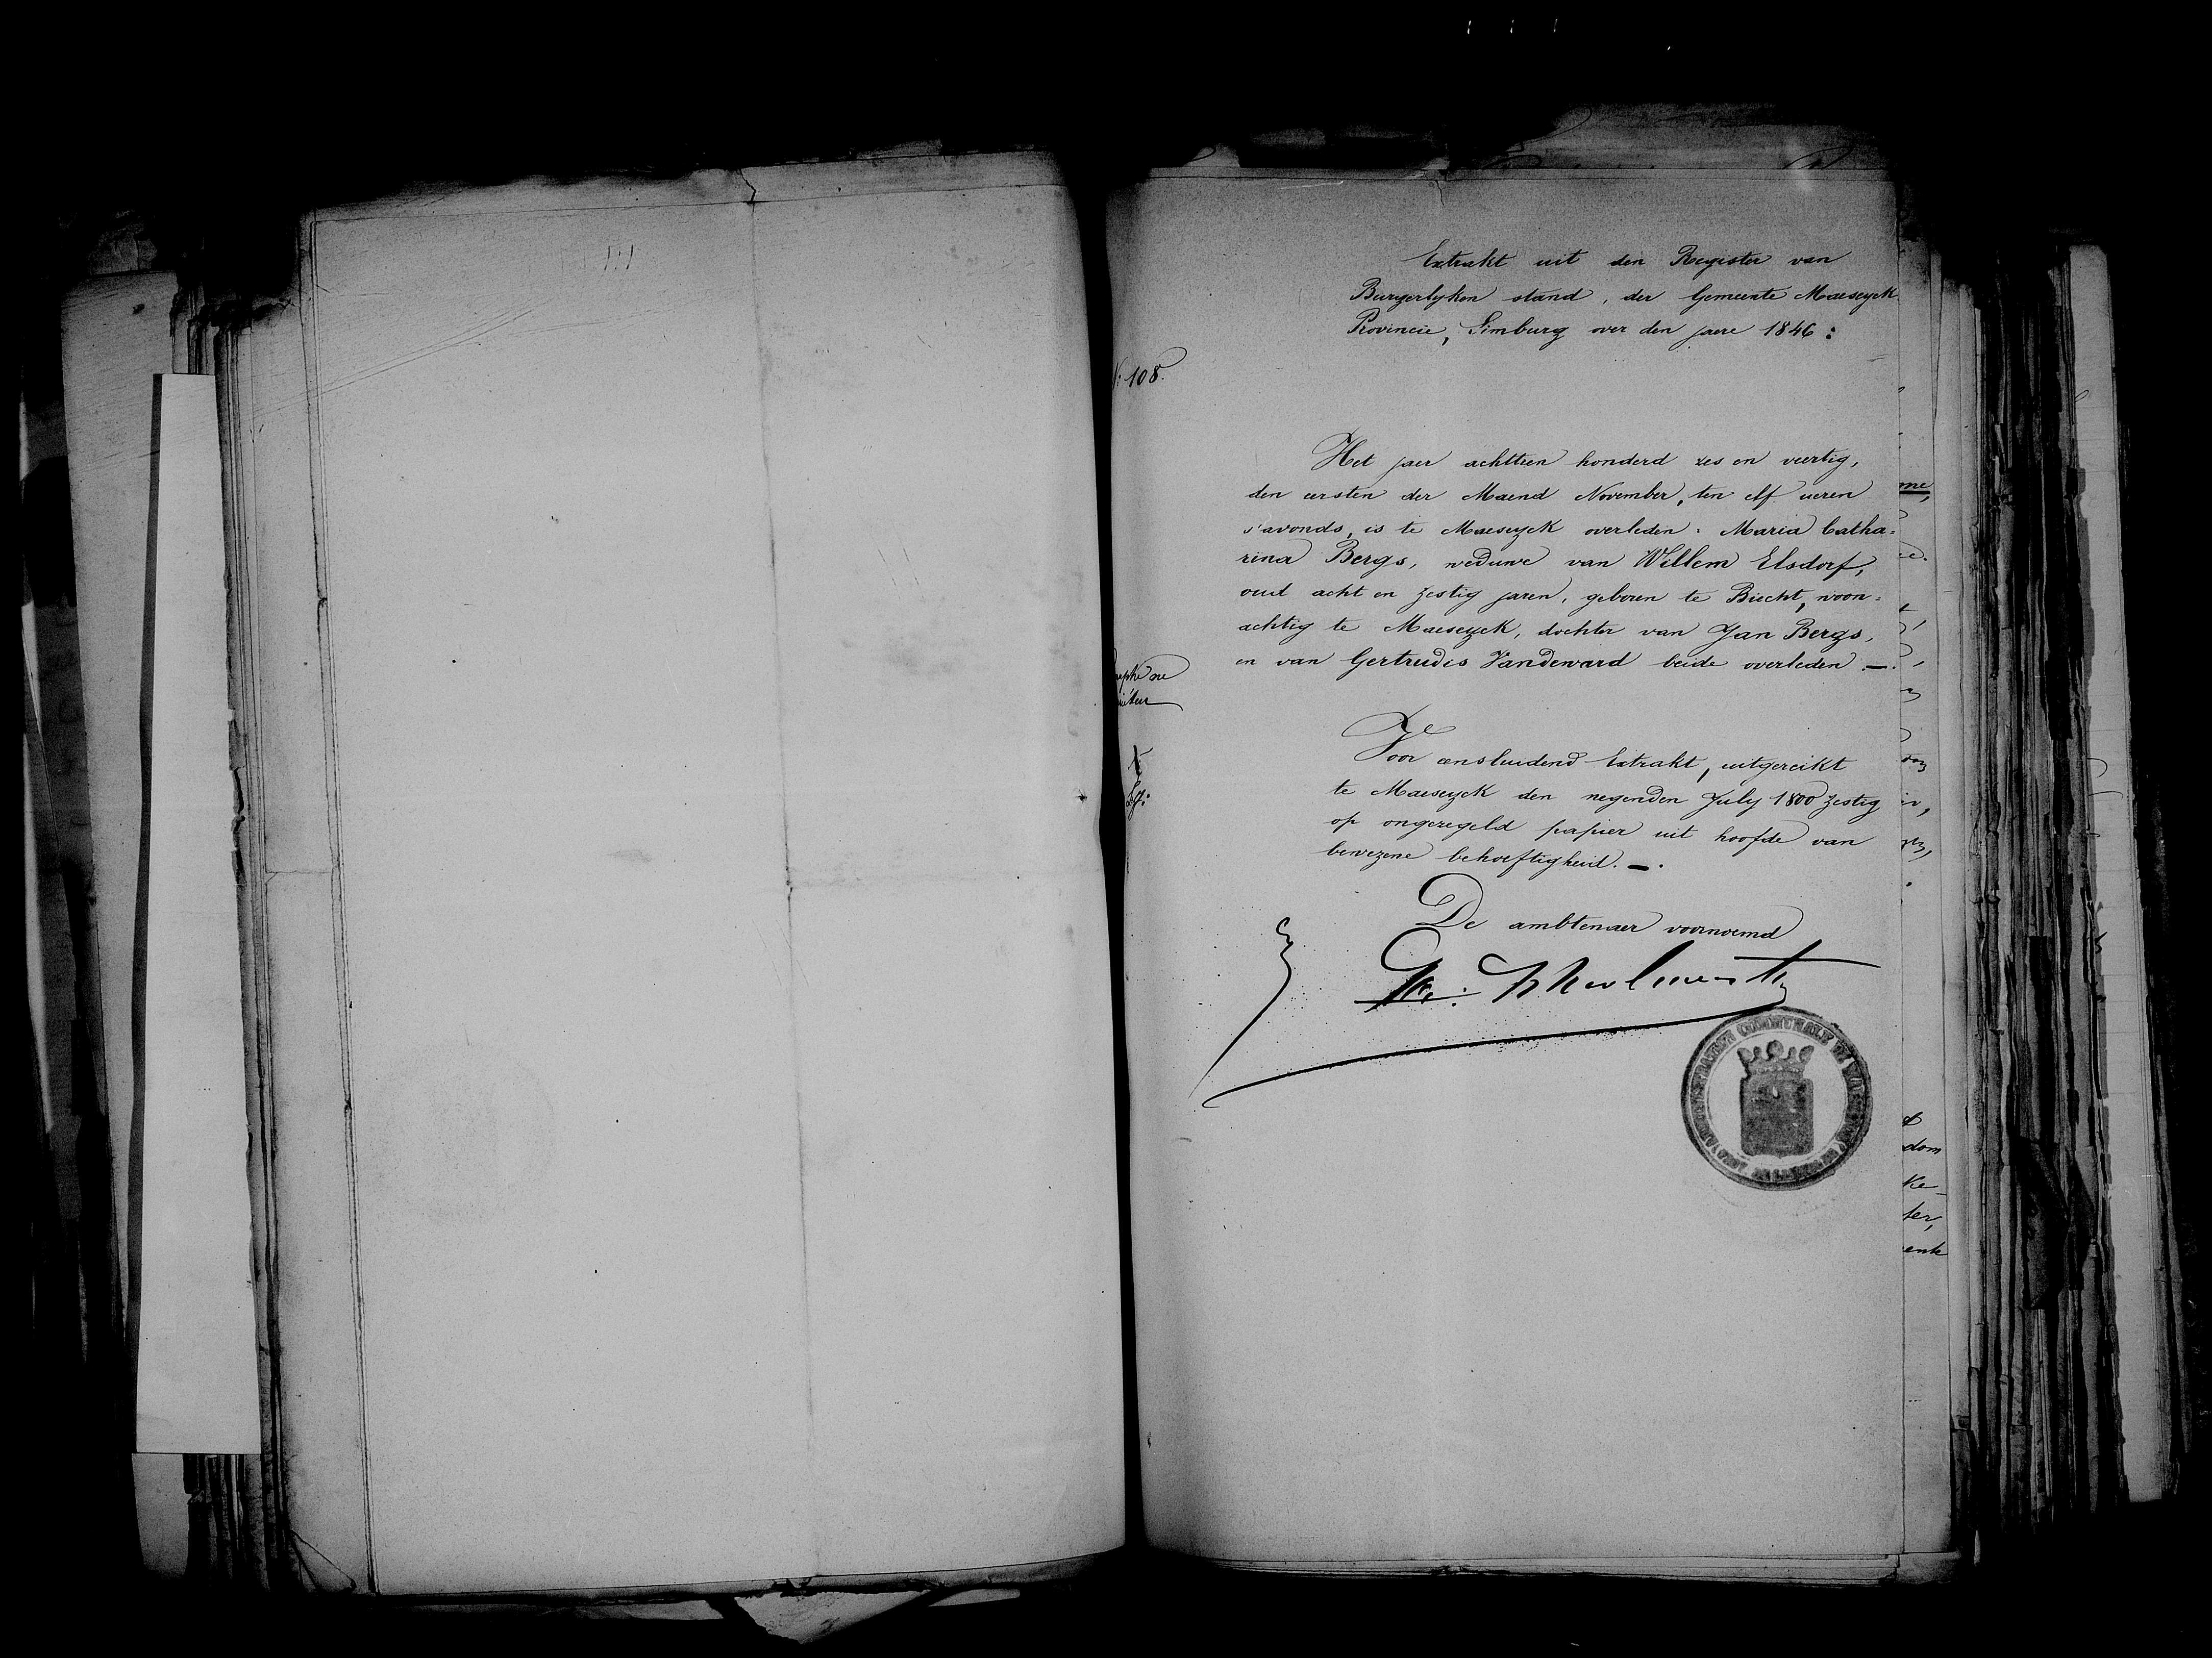 Extrakt uit den Register van
Burgerlyken stand, der Gemeente Maeseyck
Provincie, Limburg over den jaere 1846:
N: 108.
Het jaer achttien honderd zes en veertig,
den eersten der Maend November, ten elf ueren
s'avonds, is te Maeseyck overleden: Maria Catha=
rina Bergs, weduwe van Willem Elsdorf,
oud acht en zestig jaren, geboren te Biecht, woon=
achtig te Maeseyck, dochter van Jan Bergs,
en van Gertrudis Vandeward beide overleden. —
Voor eensluidend Extrakt, uitgereikt
te Maeseyck den negenden July 1800 zestig
op ongezegeld papier uit hoofde van
bewezene behoeftigheid. —.
De ambtenaer voornoemd
ADMINISTRATION COMMUNALE DE
dom
Ke-
ter,